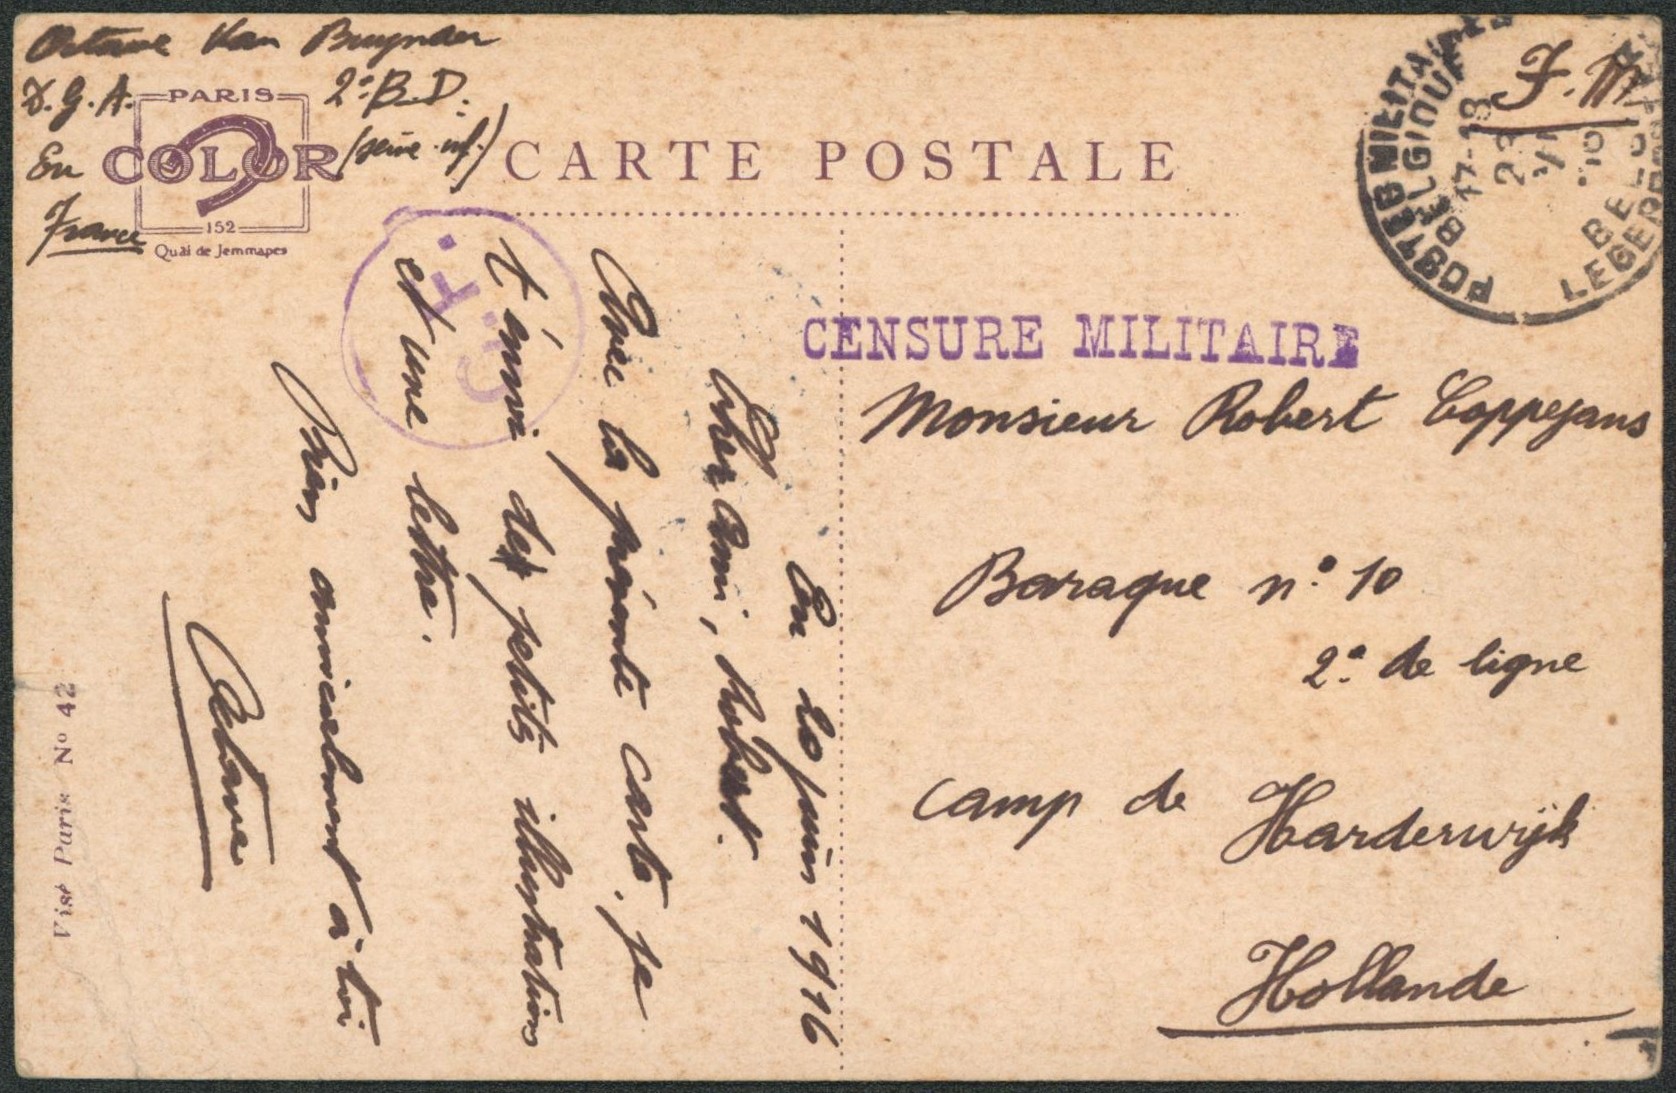 Octave Van Buynder
D.G.A. 2e B.D.
(Seine-inf.)
En
France
PARIS
COLOR
152
Quai de Jemmapes
CARTE POSTALE
F.M
POSTES MILITAIRES
BELGIQUE
17-18
23
VI
BELGIË
LEGERPOSTERIJ
C.F.
CENSURE MILITAIRE
Monsieur Robert Coppejans
Baraque n° 10
2e de ligne
Camp de Harderwijk
Hollande
En 20 juin 1916
Cher ami, Robert.
Avec la présente carte, je
t'envoi des petits illustrations
et une lettre.
Bien amicalement à toi
Octave
Visé Paris No 42